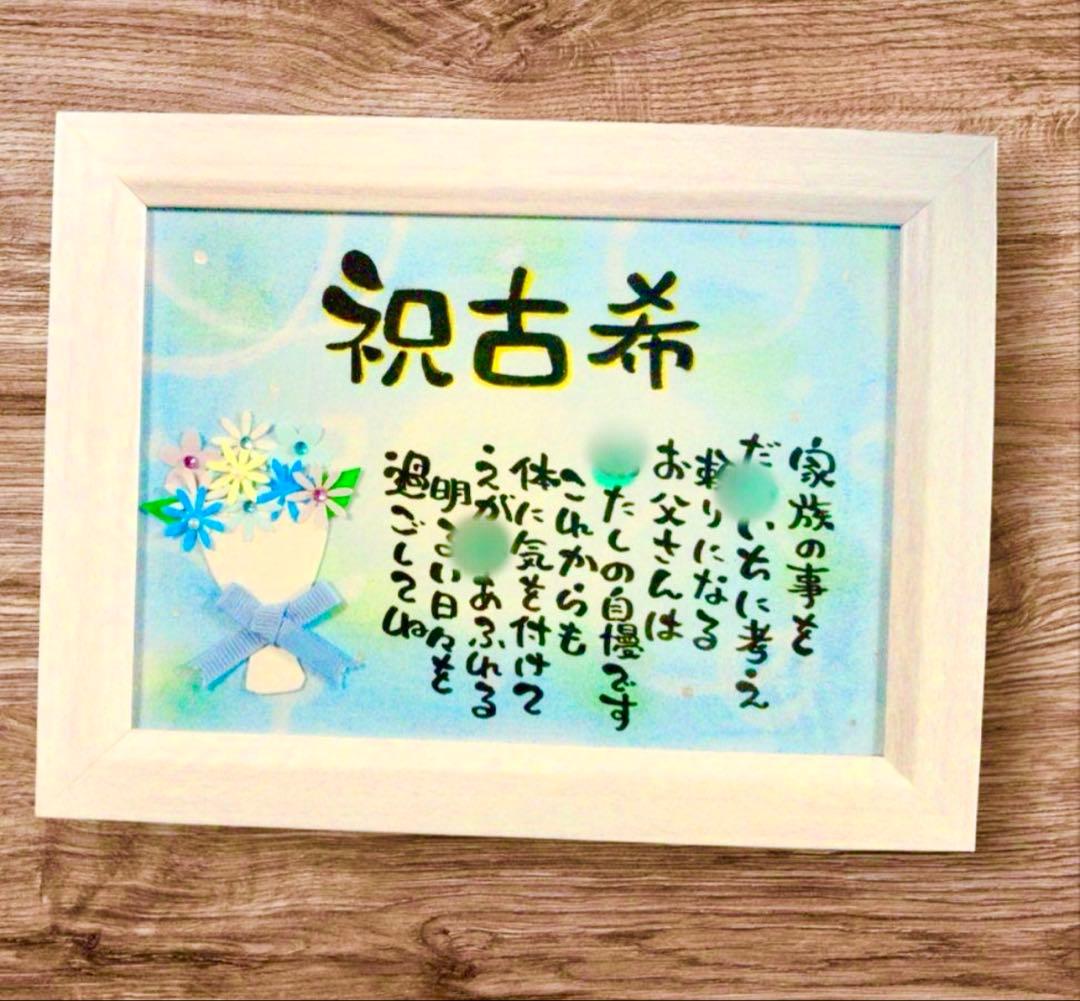 祝古希
家族の事を
だ いちに考え
頼りになる
お父さんは
たしの自慢です
これからも
体に気を付けて
えが あふれる
明るい日々を
過ごしてね